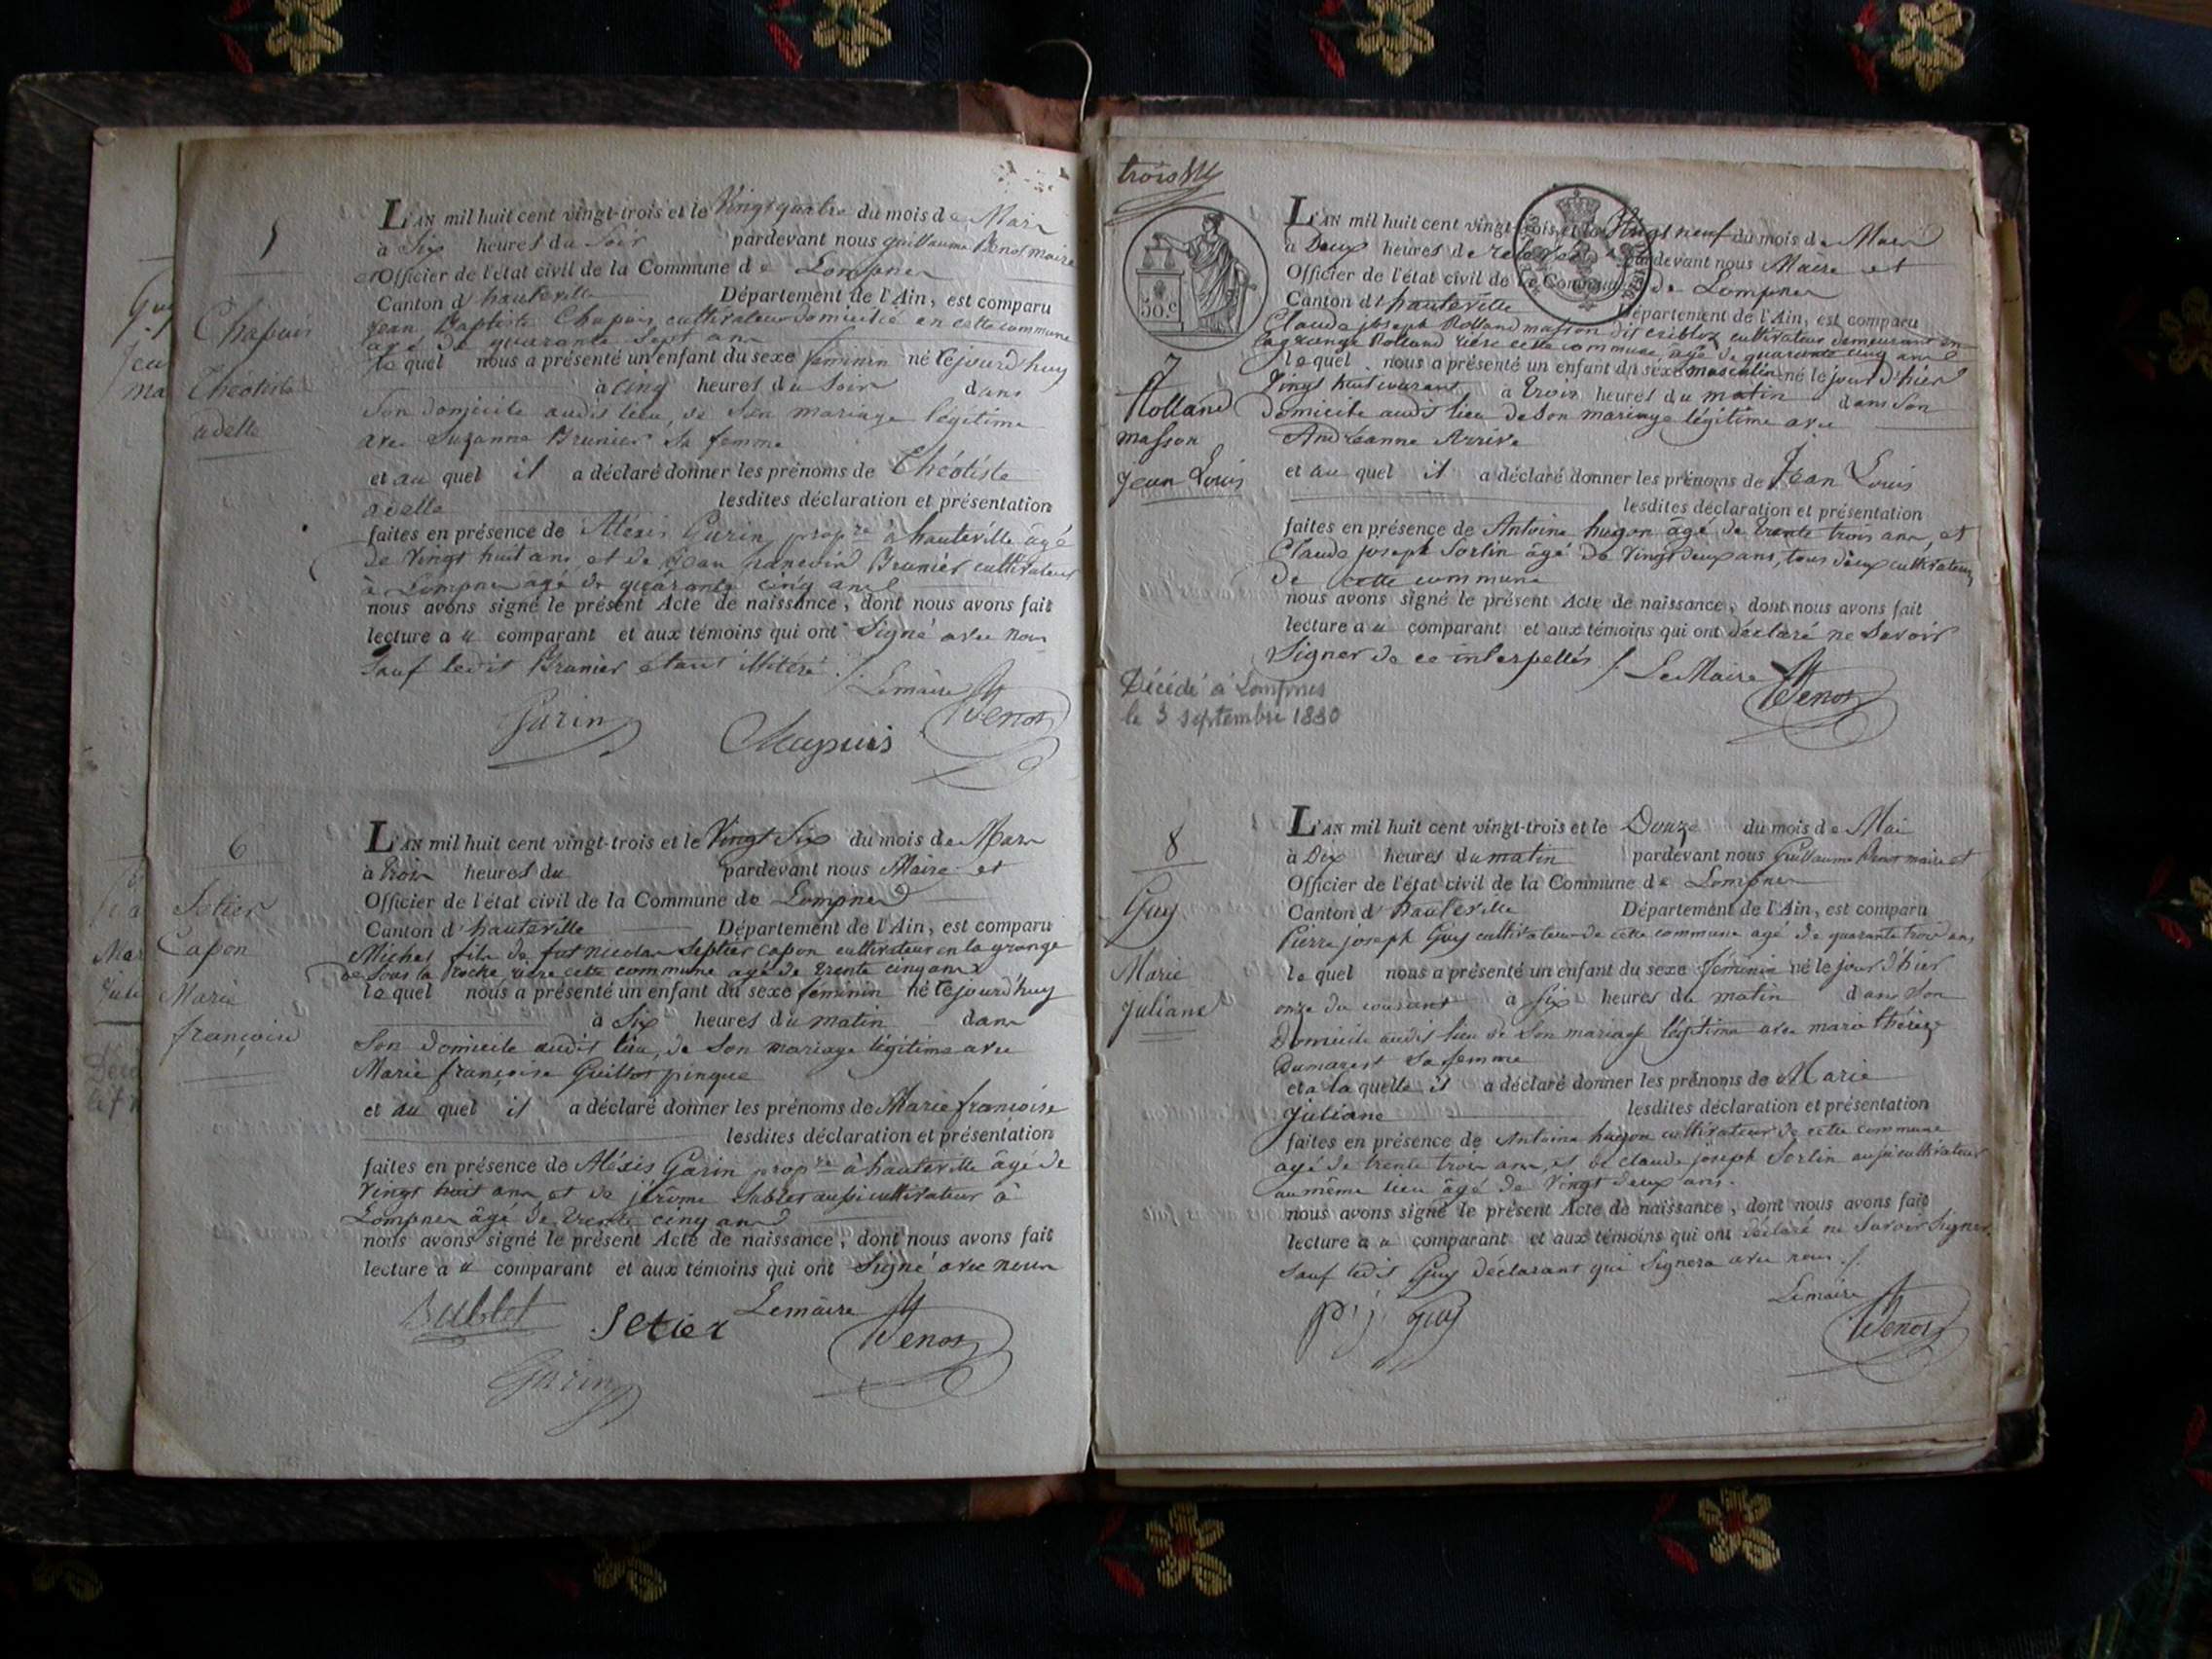 5
Chapuis
Théotiste
adelle
L'AN mil huit cent vingt-trois et le Vingt quatre du mois de Mars
à Six heures du Soir pardevant nous guillaume Venot maire
et Officier de l'état civil de la Commune de Lompnes
Canton d'hauteville Département de l'Ain, est comparu
Jean Baptiste Chapuis cultivateur domicilié en cette commune
âgé de quarante Sept ans
le quel nous a présenté un enfant du sexe féminin né le jourd'huy
à cinq heures du Soir dans
Son domicile audit lieu, de Son mariage légitime
avec Suzanne Brunier Sa femme
et au quel il a déclaré donner les prénoms de Théotiste
adelle lesdites déclaration et présentation
faites en présence de Aléxis Garin propre à hauteville âgé
de Vingt huit ans, et de Jean françois Brunier cultivateur
à Lompnes âgé de quarante cinq ans
nous avons signé le présent Acte de naissance, dont nous avons fait
lecture au comparant et aux témoins qui ont Signé avec nous
Sauf ledit Brunier étant illitéré ./. Lemaire
Garin Chapuis Venot
6
Setier
Capon
Marie
françoise
L'AN mil huit cent vingt-trois et le Vingt Six du mois de Mars
à trois heures du pardevant nous Maire et
Officier de l'état civil de la Commune de Lompnes
Canton d'hauteville Département de l'Ain, est comparu
Michel fils de fut nicolas Septier capon cultivateur en la grange
de Sous la Roche rière cette commune agé de trente cinq ans
le quel nous a présenté un enfant du sexe féminin né le jourd'huy
à Six heures du matin dans
Son domicile audit lieu, de Son mariage légitime avec
Marie françoise Guillot pingue
et au quel il a déclaré donner les prénoms de Marie françoise
lesdites déclaration et présentation
faites en présence de Aléxis Garin propre à hauteville âgé de
Vingt huit ans et de jérôme Sublet aussi cultivateur à
Lompnes âgé de trente cinq ans
nous avons signé le présent Acte de naissance, dont nous avons fait
lecture au comparant et aux témoins qui ont Signé avec nous
Sublet Setier Lemaire Venot
Garin
trois
50.c
7
Rolland
masson
Jean Louis
Décédé à Lompnes
le 3 septembre 1880
L'AN mil huit cent vingt-trois et le Vingt neuf du mois de Mars
à Deux heures de relevée pardevant nous Maire et
Officier de l'état civil de la Commune de Lompnes
Canton d'hauteville Département de l'Ain, est comparu
Claude joseph Rolland masson dit cultivateur demeurant en
la grange Rolland rière cette commune, agé de quarante cinq ans
le quel nous a présenté un enfant du sexe masculin né le jour d'hier
Vingt huit courant à trois heures du matin dans Son
domicile audit lieu de Son mariage légitime avec
Andréanne Arrive
et au quel il a déclaré donner les prénoms de Jean Louis
lesdites déclaration et présentation
faites en présence de Antoine hugon âgé de trente trois ans, et
Claude joseph Sorlin âgé de Vingt deux ans, tous deux cultivateurs
de cette commune
nous avons signé le présent Acte de naissance, dont nous avons fait
lecture au comparant et aux témoins qui ont déclaré ne Savoir
Signer de ce interpellés ./. Le Maire Venot
8
Guy
Marie
Juliane
L'AN mil huit cent vingt-trois et le Douze du mois de Mai
à Dix heures du matin pardevant nous Guillaume Venot maire et
Officier de l'état civil de la Commune de Lompnes
Canton d'hauteville Département de l'Ain, est comparu
Pierre joseph Guy cultivateur de cette commune agé de quarante trois ans
le quel nous a présenté un enfant du sexe féminin né le jour d'hier
onze du courant à Six heures du matin dans Son
Domicile audit lieu de Son mariage légitime avec marie thérèze
Dumarest Sa femme
et a la quelle il a déclaré donner les prénoms de Marie
Juliane lesdites déclaration et présentation
faites en présence de Antoine hugon cultivateur de cette commune
agé de trente trois ans, et de claude joseph Sorlin aussi cultivateur
au même lieu âgé de Vingt deux ans.
nous avons signé le présent Acte de naissance, dont nous avons fait
lecture au comparant et aux témoins qui ont déclaré ne Savoir Signer
Sauf ledit Guy déclarant qui Signera avec nous ./.
Lemaire
p. j. guy Venot